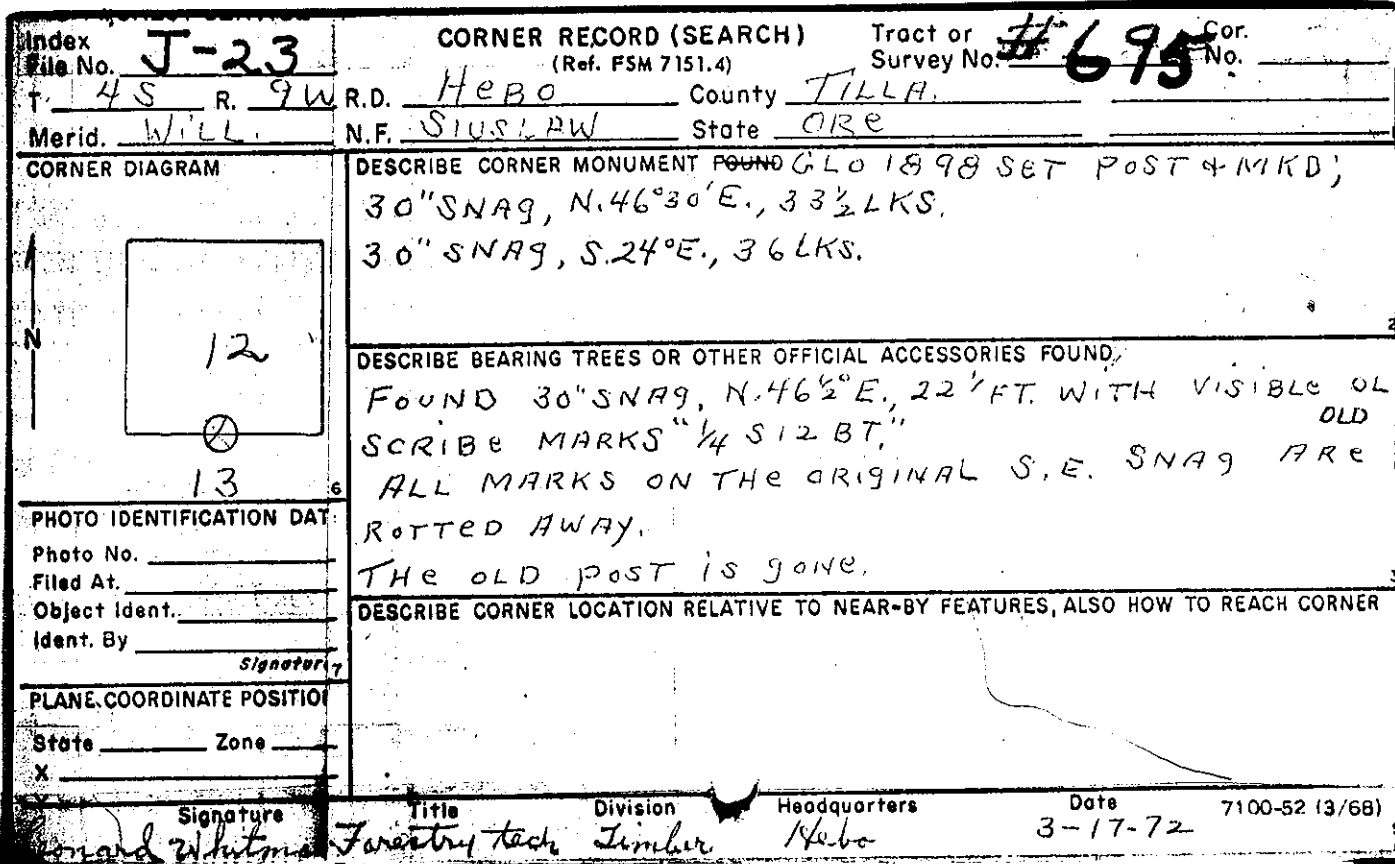 Index CORNER RECORD (SEARCH) Tract or Cor.
File No. J-23 (Ref. FSM 7151.4) Survey No. #695 No.
T. 4S R. 9W R.D. HeBO County TILLA.
Merid. WILL. N.F. SIUSLAW State ORe
CORNER DIAGRAM
N
12
13
6
PHOTO IDENTIFICATION DAT
Photo No.
Filed At.
Object Ident.
Ident. By
Signature 7
PLANE COORDINATE POSITIO
State Zone
X
DESCRIBE CORNER MONUMENT FOUND GLO 1898 SET POST & MKD;
30" SNAg, N.46°30'E., 33½ LKS.
30" SNAg, S.24°E., 36 LKS.
2
DESCRIBE BEARING TREES OR OTHER OFFICIAL ACCESSORIES FOUND
FOUND 30" SNAg, N.46½°E., 22' FT. WITH VISIBLE OL
OLD
SCRIBE MARKS "¼ S12 BT."
ALL MARKS ON THe ORIgINAL S.E. SNAg ARe
ROTTeD AWAY.
THe OLD POST iS gONe.
DESCRIBE CORNER LOCATION RELATIVE TO NEAR-BY FEATURES, ALSO HOW TO REACH CORNER
Signature Title Division Headquarters Date 7100-52 (3/68)
Whitman Forestry tech Timber Hebo 3-17-72